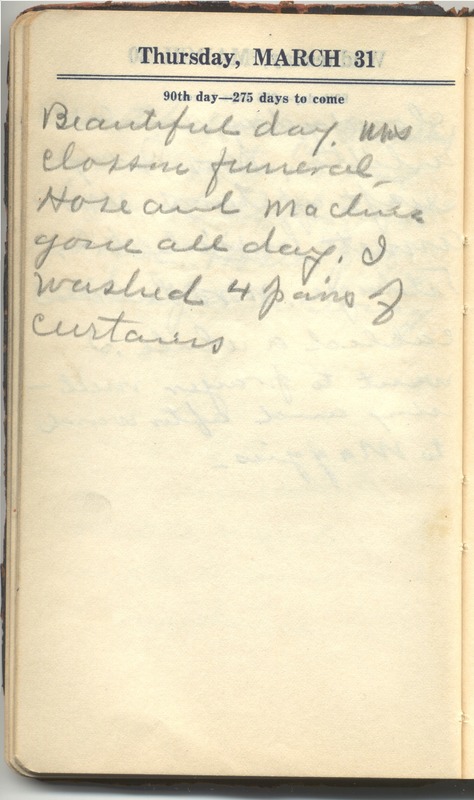 Thursday, MARCH 31
90th day—275 days to come
Beautiful day. Mrs
Closson funeral
and
gone all day. I
washed 4 pairs of
curtains